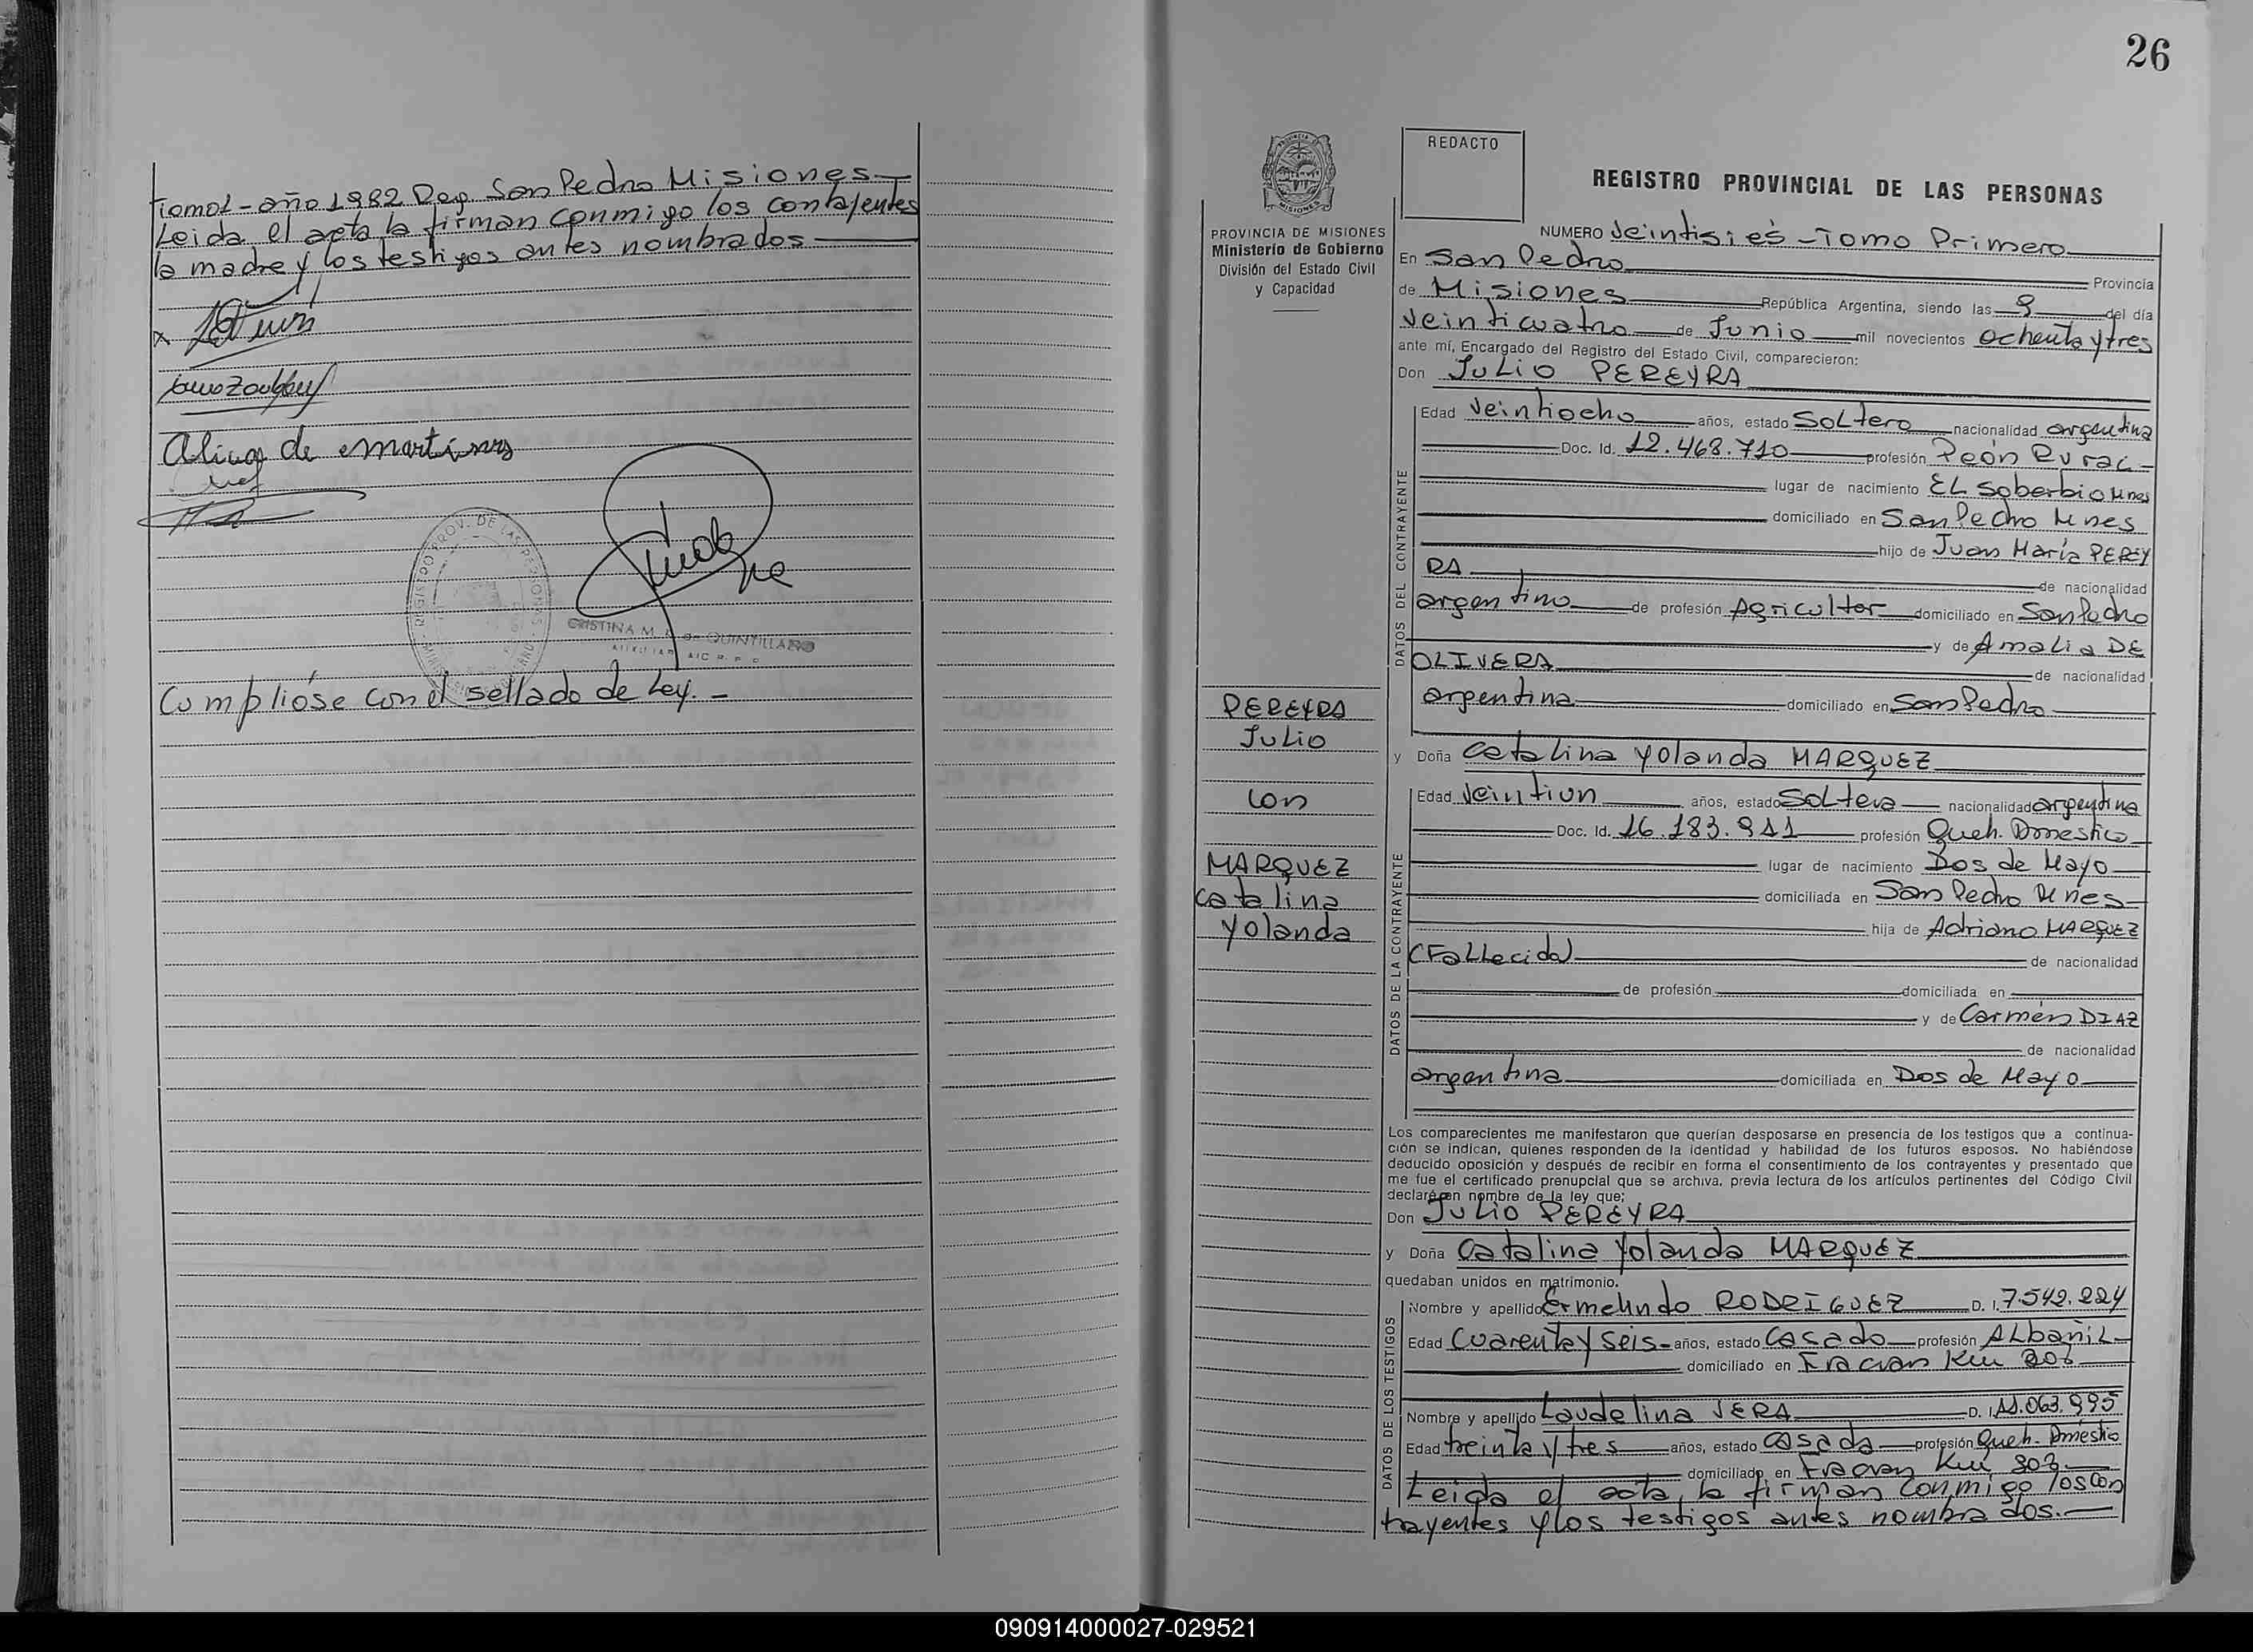 Tomo1-año 1982 Reg. San Pedro Misiones
Leida el acta la firman conmigo los contayentes
la madre y los testigos antes nombrados
Aliuo de martines
REGISTRO PROV. DE LAS PERSONAS
CRISTINA M. de QUINTILLANO
Cumplióse con el sellado de Ley.-
26
PROVINCIA DE MISIONES
Ministerio de Gobierno
División del Estado Civil
y Capacidad
REDACTO
REGISTRO PROVINCIAL DE LAS PERSONAS
NUMERO Veintisies - Tomo Primero
En San Pedro Provincia
de Misiones República Argentina, siendo las 9 del día
veinticuatro de Junio mil novecientos ochenta y tres
ante mí, Encargado del Registro del Estado Civil, comparecieron:
Don Julio PEREYRA
DATOS DEL CONTRAYENTE
Edad Veintiocho años, estado Soltero nacionalidad argentina
Doc. Id. 12.468.710 profesión Peón Rural
lugar de nacimiento EL Soberbio Mnes
domiciliado en San Pedro Mnes
hijo de Juan María PEREY
RA de nacionalidad
argentino de profesión Agricultor domiciliado en San Pedro
y de Amalia DE
OLIVERA de nacionalidad
argentina domiciliado en San Pedro
PEREYRA
Julio
con
MARQUEZ
Catalina
Yolanda
y Doña Catalina Yolanda MARQUEZ
DATOS DE LA CONTRAYENTE
Edad Veintiun años, estado Soltera nacionalidad argentina
Doc. Id. 16.183.911 profesión Queh. Domestico
lugar de nacimiento Dos de Mayo
domiciliada en San Pedro Mnes
hija de Adriano MARQUEZ
(Fallecido) de nacionalidad
de profesión domiciliada en
y de Carmén DIAZ
de nacionalidad
argentina domiciliada en Dos de Mayo
Los comparecientes me manifestaron que querían desposarse en presencia de los testigos que a continua-
ción se indican, quienes responden de la identidad y habilidad de los futuros esposos. No habiéndose
deducido oposición y después de recibir en forma el consentimiento de los contrayentes y presentado que
me fue el certificado prenupcial que se archiva, previa lectura de los artículos pertinentes del Código Civil
declaré en nombre de la ley que:
Don Julio PEREYRA
y Doña Catalina Yolanda MARQUEZ
quedaban unidos en matrimonio.
DATOS DE LOS TESTIGOS
Nombre y apellido Ermelindo RODRIGUEZ D. I. 7.542.224
Edad Cuarenta y seis años, estado Casado profesión Albañil
domiciliado en Fracran Km 303
Nombre y apellido Laudelina VERA D. I. 11.063.995
Edad treinta y tres años, estado casada profesión Queh. Dméstio
domiciliado en Fracran Km 303
Leida el acta, la firman conmigo los con
trayentes y los testigos antes nombrados.-
090914000027-029521